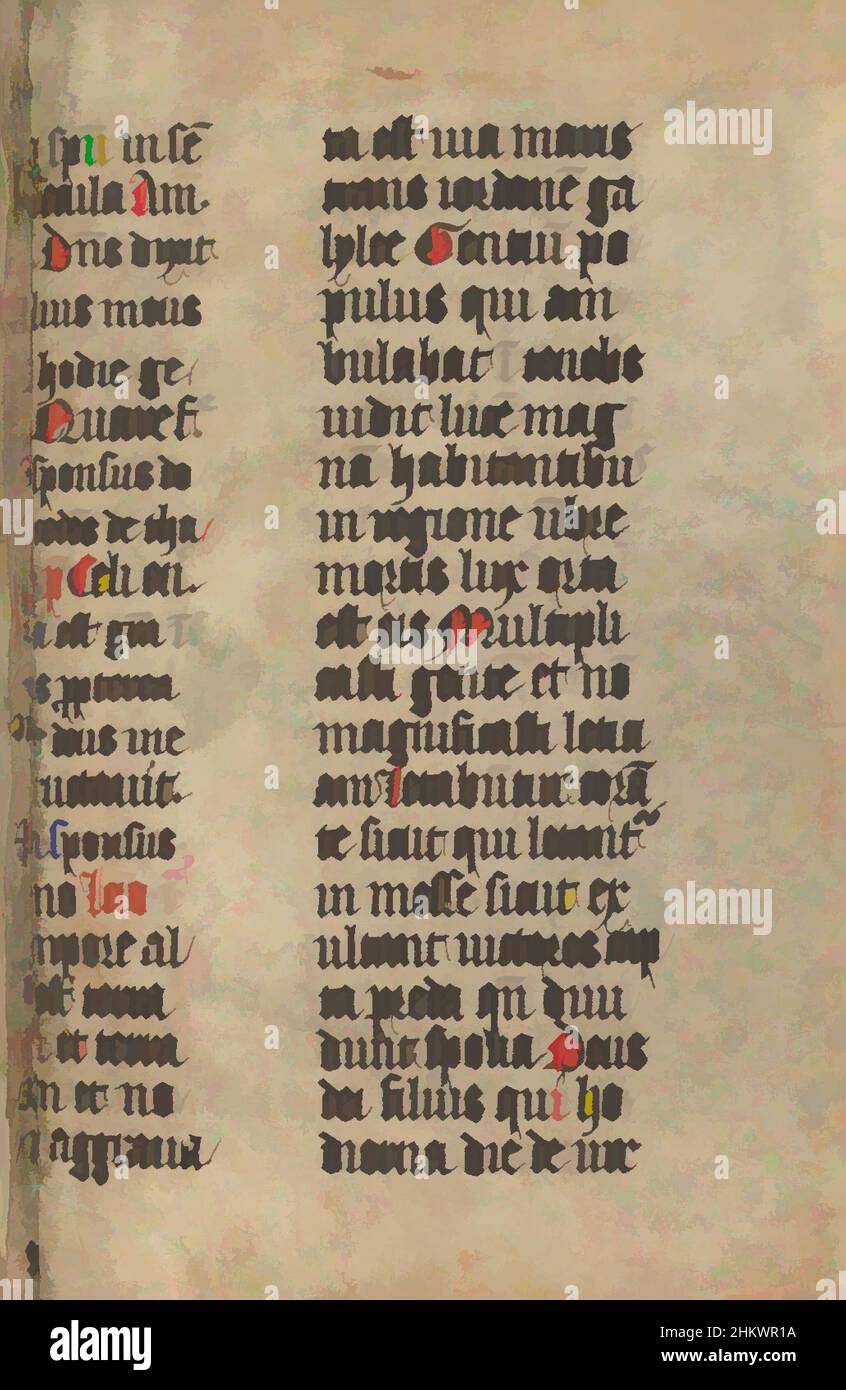 spu in se
cula Am.
Dns dixit
lius meus
hodie ge
Quare f.
sponsus do
cedes de tha
p Celi en.
ra est gra
is ppterea
deus me
sponsus
no leo
mpore al
est terra
et terra
m et no
aggraua
ta est uia maris
trans iordane ga
lylee Gentiu po
pulus qui am
bulabat tenebis
uidit luce mag
na habitantibu
in regione ubre
mortis lux orta
est eis Multipli
casti gente et no
magnificasti leticia
am letabuntur cora
te sicut qui letant
in messe sicut ex
ultant uictores cap
ta preda qn diui
dunt spolia Deus
dei filius qui ho
dierna die de uir
alamy
www.alamy.com
Image ID: 2HKWR1A